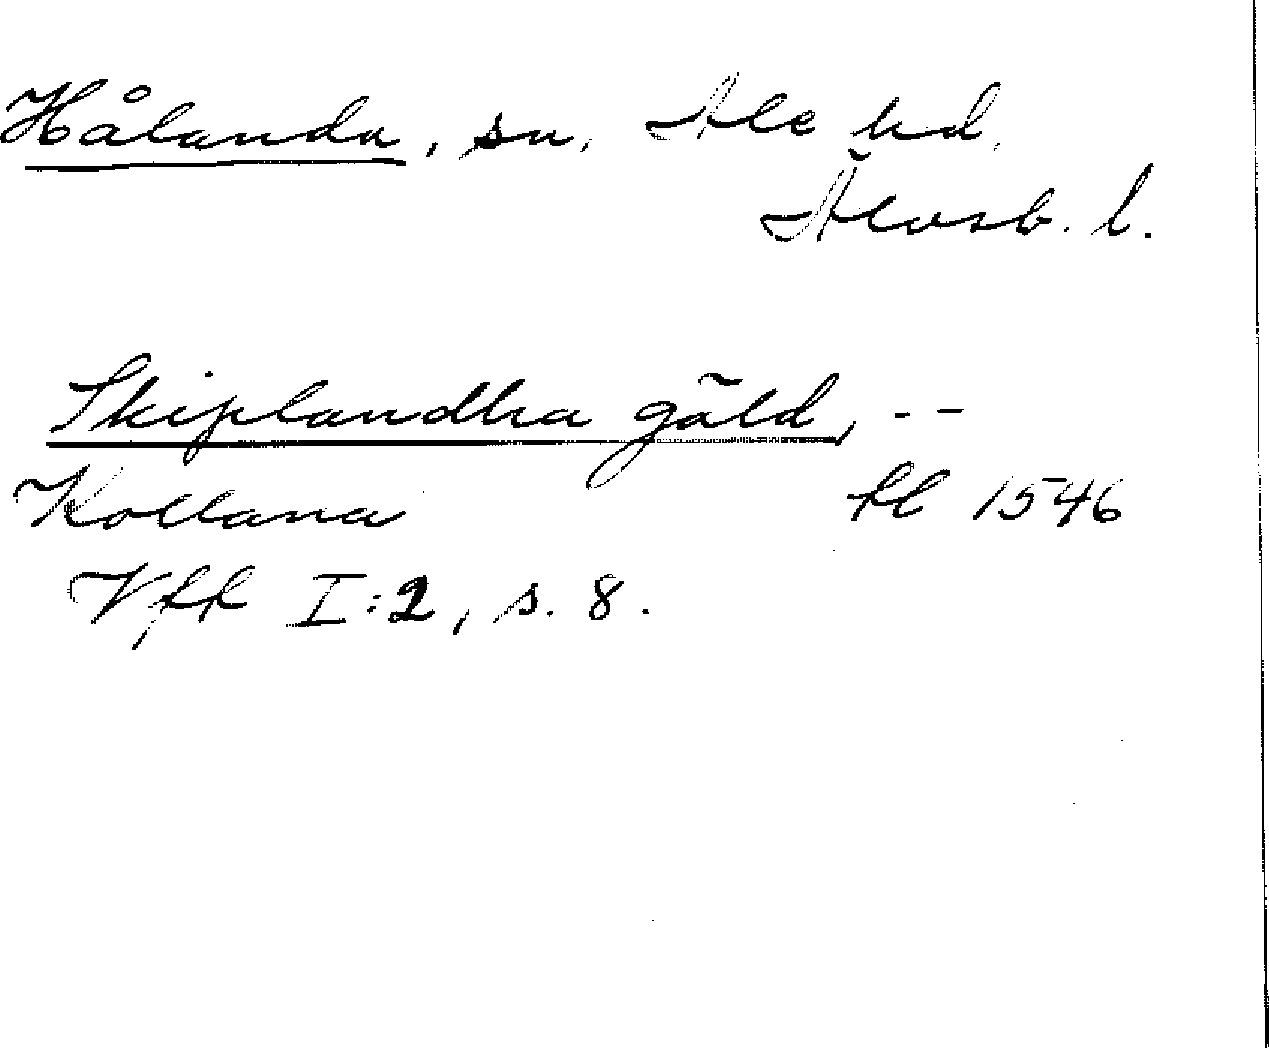 Hålanda, sn, Ale hd.
Älvsb. l.
Skiplandha gäld, --
Kollana kl 1546
Vff I:2, s. 8.